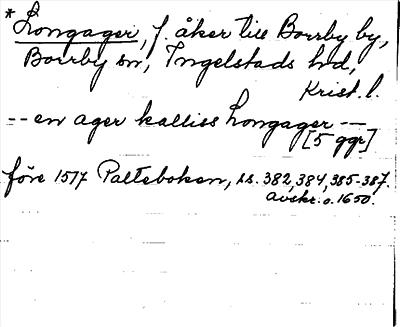 * Longager, f. åker till Borrby by,
Borrby sn, Ingelstads hd,
Krist. l.
-- en ager kalliss Longager --
[5 ggr]
före 1517 Palteboken, ss. 382, 384, 385-387.
Avskr. o. 1650.